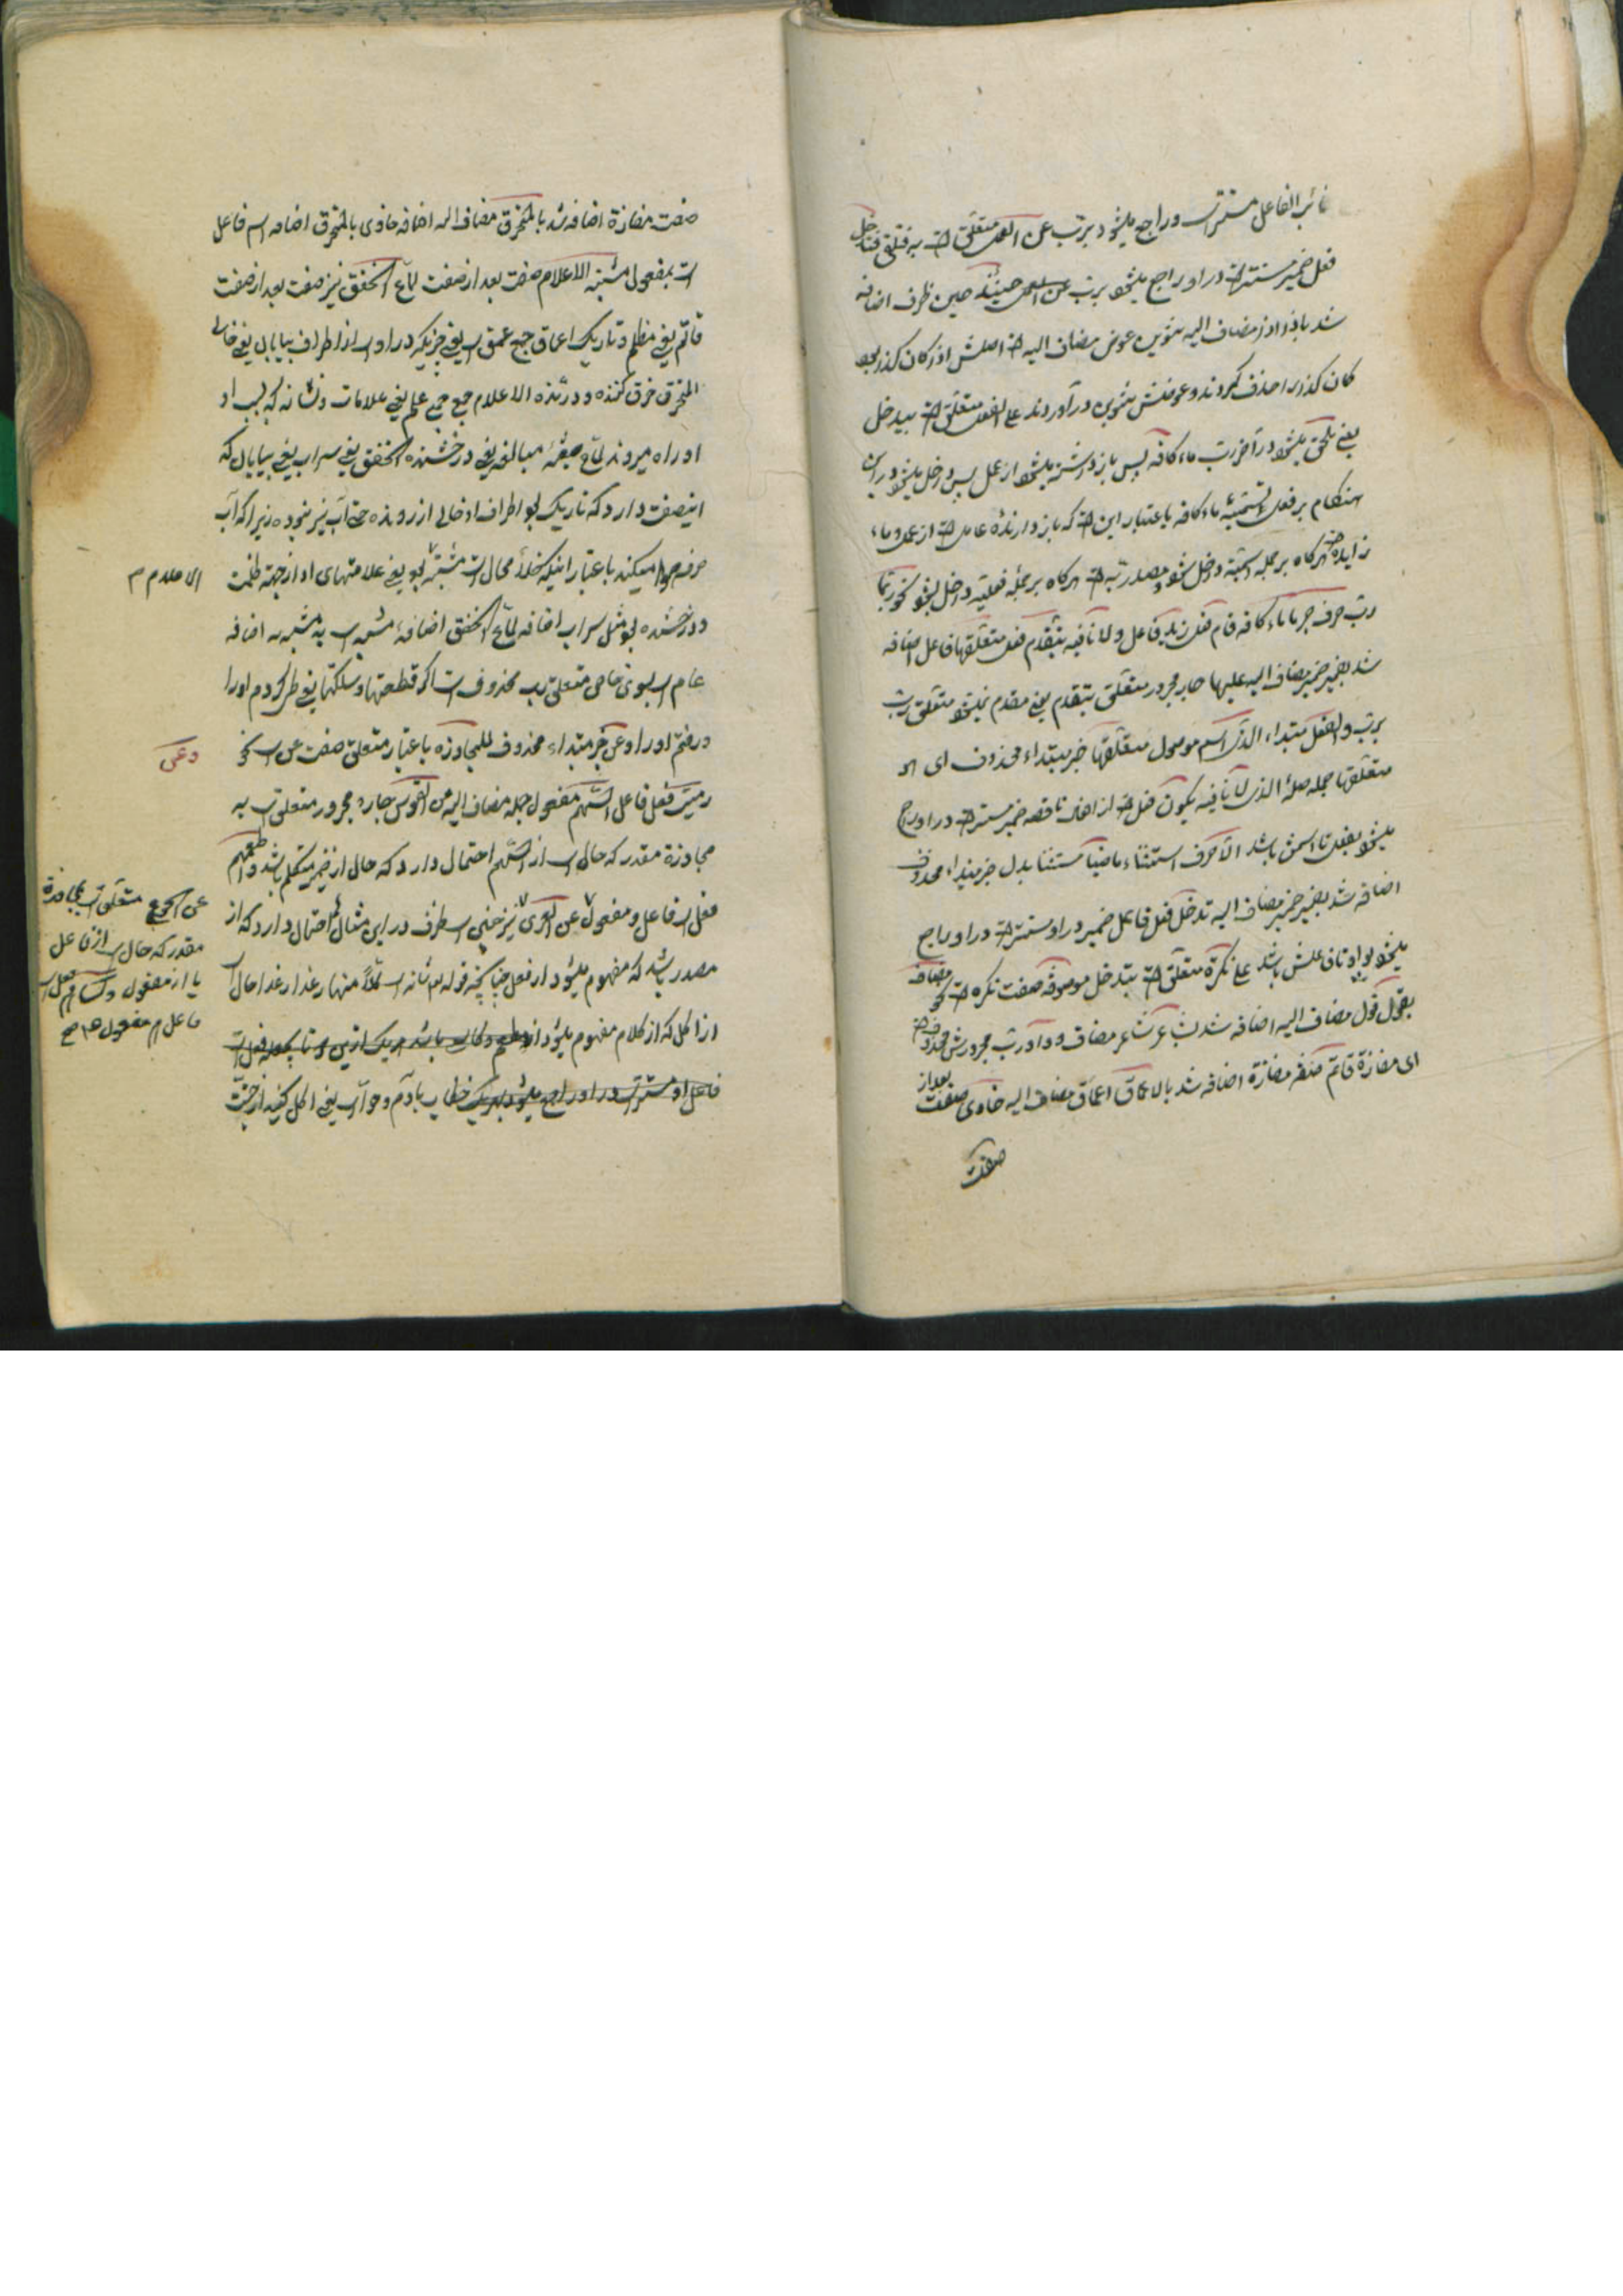 نائب الفاعل مستتر است در او راجع میشود برب عن العمل متعلق است به فتلغی فتدخل
فعل ضمیر مستتر است در او راجع میشود برب عن العمل حینئذ حین ظرف اضافه
شد باذ و اذ مضاف الیه تنوین عوض مضاف الیه است اصلش اذ کان کذا بود
کان کذا را حذف کردند و عوضش تنوین در آوردند علی الفعل متعلق است بیدخل
یعنی ملحق میشود در آخر رب ماء کافه پس باز داشته میشود از عمل پس داخل میشود در این
هنگام بر فعل تسمیه ماء کافه باعتبار این است که باز دارنده عامل است از عمل و ماء
زایده است هرگاه بر جمله اسمیه داخل شود و مصدریه است هرگاه بر جمله فعلیه داخل شود نحو ربما
رب حرف جر ما ماء کافه قام فعل زید فاعل و لا نافیه یتقدم فعل متعلقها فاعل اضافه
شد بضمیر ضمیر مضاف الیه علیها جار مجرور متعلق بیتقدم یعنی مقدم نمیشود متعلق رب
برب و الفعل مبتداء الذی اسم موصول متعلقها خبر مبتداء محذوف ای هو
متعلقها جمله صلهٔ الذی لا نافیه یکون فعل است از افعال ناقصه ضمیر مستتر است در او راجع
میشود بفعل تا اسمش باشد الا حرف استثناء ماضیا مستثنا بدل خبر مبتداء محذوف
اضافه شد بضمیر ضمیر مضاف الیه تدخل فعل فاعل ضمیر در او مستتر است در او راجع
میشود بواو تا فاعلش باشد علی نکرة متعلق است بتدخل موصوفه صفت نکره است نحو مضاف
بقول قول مضاف الیه اضافه شد بشاعر شاعر مضاف و واو رب مجرورش محذوف است
ای مفازة قاتم صفت مفازة اضافه شد بالاعماق اعماق مضاف الیه خاوی صفت بعد از
صفت
صفت مفازة اضافه شد بالمخترق مضاف الیه اضافه خاوی بالمخترق اضافه اسم فاعل
است بمفعولی مشتبه الاعلام صفت بعد از صفت لماع الخفق نیز صفت بعد از صفت
قاتم یعنی مظلم و تاریک اعماق جمع عمق است یعنی چیزیکه در او است از اطراف بیابان یعنی خالی
المخترق خرق کننده و درنده الاعلام جمع علم یعنی علامات و نشانه که بسبب او
او راه میروند لماع صیغهٔ مبالغه یعنی درخشنده الخفق یعنی سراب یعنی بیابان که
اینصفت دارد که تاریک بود اطراف او خالی از رونده حتی آب نیز نبوده زیرا که آب
خرق هوا میکند باعتبار اینکه خلأ محال است مشتبه بود یعنی علامتهای او از جهة ظلمت
الاعلام م
و درخشنده بود مثل سراب اضافه لماع الخفق اضافهٔ مشبه است به مشبه به اضافه
عام است بسوی خاص متعلق رب محذوف است اکر قطعتها و سلکتها یعنی طی کردم او را
و رفتم او را و عن خبر مبتداء محذوف للمجاوزه باعتبار متعلق صفت عن است نحو
وعن
رمیت فعل فاعل السهم مفعول جمله مضاف الیه عن القوس جار و مجرور متعلق است به
مجاوزة مقدر که حال است از السهم احتمال دارد که حال از ضمیر متکلم باشد و اطعمهم
فعل است فاعل و مفعول عن العری نیز چنین است ظرف در این مثال احتمال دارد که از
عن الجوع متعلق است بمجاوزة
مقدر که حال است از فاعل
یا از مفعول و کساهم فعل است
فاعل هم مفعول هم صح
مصدر باشد که مفهوم میشود از فعل چنانچه قوله تعالی شانه است کلا منها رغدا رغدا حال است
از اکل که از کلام مفهوم میشود
خطاب بآدم و حوا است یعنی اکل کنید از جنت